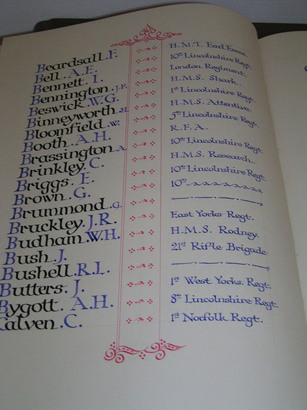 Beardsall .F. H.M.T. Earl Essex.
Bell .A.E. 10th Lincolnshire Regt.
Bennett . I. London Regiment.
Bennington .J.P. H.M.S. Shark.
Beswick .W.G. 1st Lincolnshire Regt.
Binneyworth H.M.S. Attentive.
Bloomfield .W. 5th Lincolnshire Regt.
Booth . A.H. R.F.A.
Brassington .A 10th Lincolnshire Regt.
Brinkley, C. H.M.S. Research.
Briggs . E. 10th Lincolnshire Regt.
Brown . G. 10th
Brummond .G.
Bruckley. J.R. East Yorks Regt.
Budham. W.H. H.M.S. Rodney.
Bush . J. 21st Rifle Brigade
Bushell. R.L.
Butters. J. 1st West Yorks. Regt.
Bygott . A.H. 8th Lincolnshire Regt.
Calven . C. 1st Norfolk Regt.